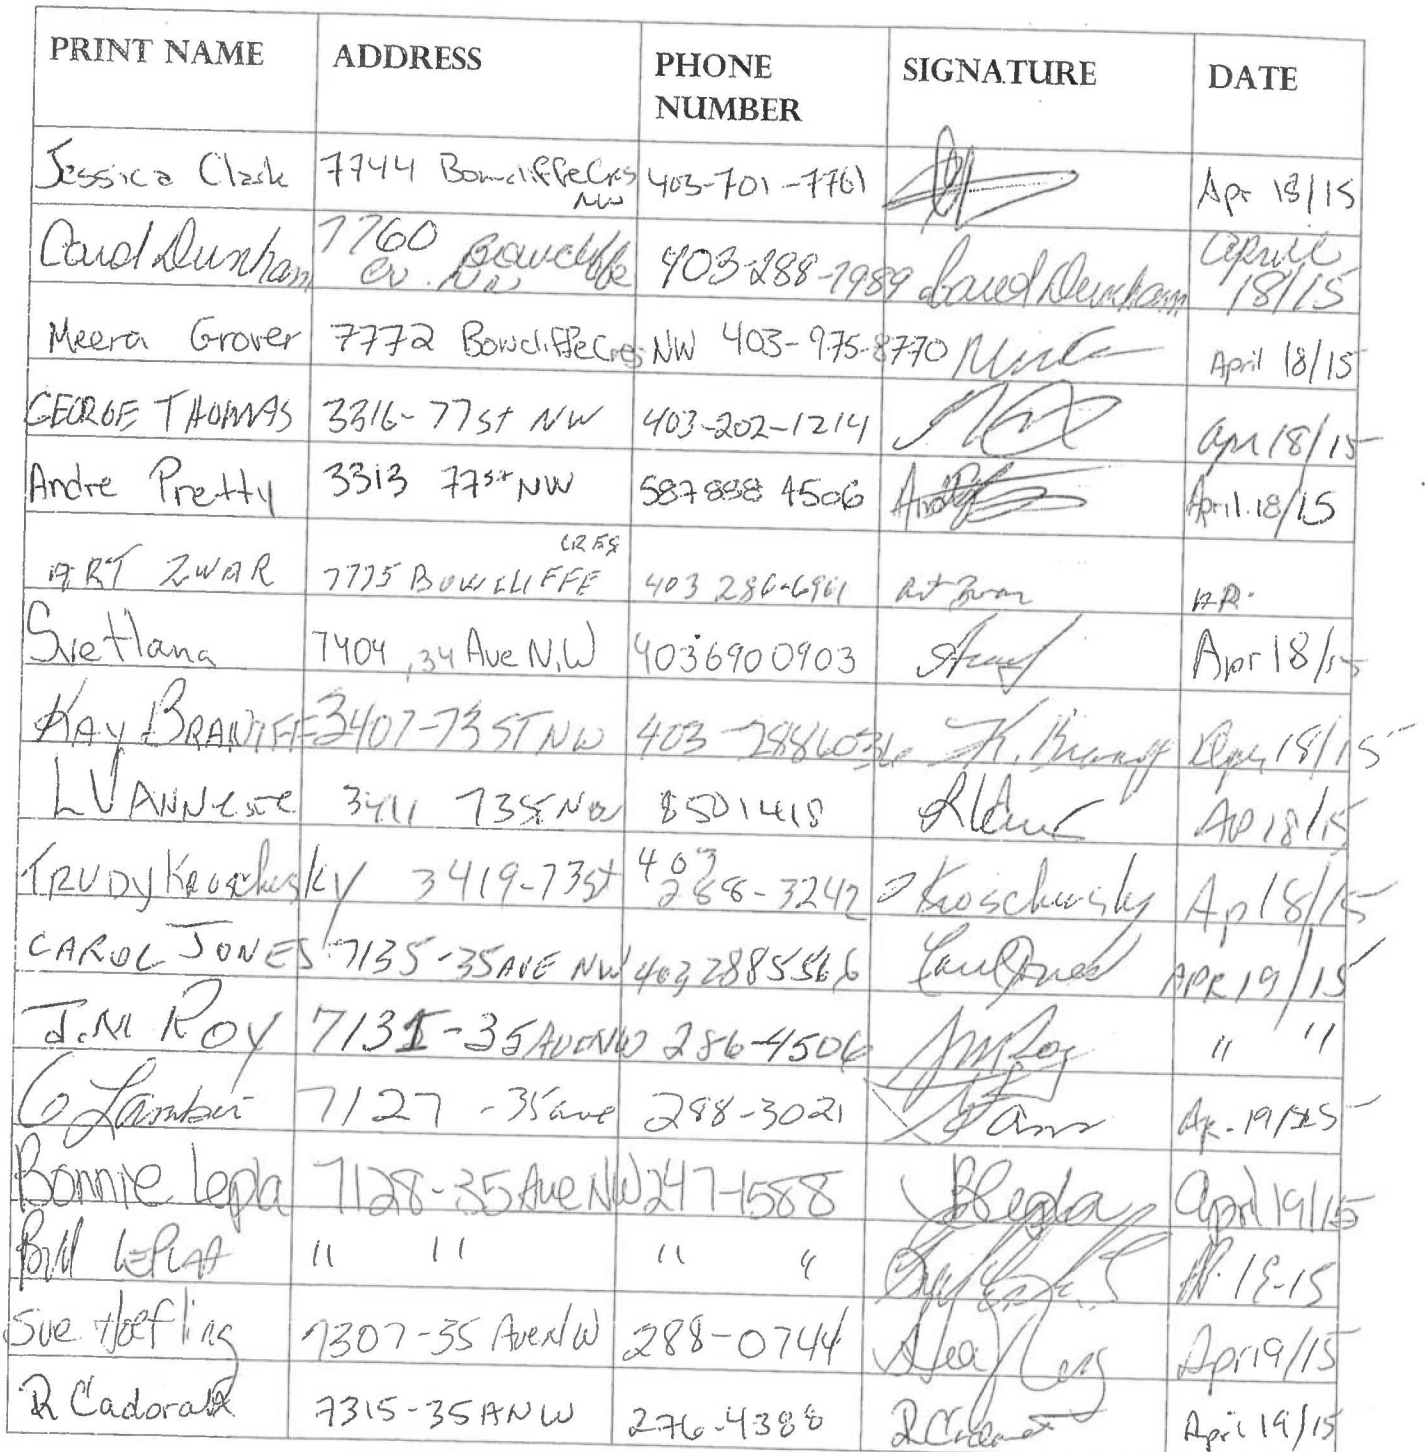 PRINT NAME ADDRESS PHONE NUMBER SIGNATURE DATE
Jessica Clark 7744 Bowcliffe Cres NW 403-701-7761 Apr 18/15
Carol Dunham 7760 Bowcliffe NW 403-288-7989 Carol Dunham April 18/15
Meera Grover 7772 Bowcliffe Cres NW 403-975-8770 April 18/15
GEORGE THOMAS 3316-77st NW 403-202-1214 Apr 18/15
Andre Pretty 3313 77st NW 587 888 4506 April 18/15
ART ZWAR 7775 BOWCLIFFE CRES 403 286-6961 Art Zwar
Svetlana 7404, 34 Ave N.W 4036900903 Apr 18/15
KAY 3407-73 ST NW 403-2886036 K. 18/15
3411 73 St NW 8501418 AP 18/15
TRUDY 3419-73st 403 288-3242 Ap 18/15
CAROL JONES 7135-35 AVE NW 403 2885566 Carol Jones APR 19/15
J.M ROY 7131-35 AVE NW 286-4506 JM Roy " "
7127 -35 ave 288-3021 Ap. 19/15
Bonnie Lepla 7128-35 Ave NW 247-1588 B Lepla April 19/15
Bill " " " "
Sue Hoefling 7307-35 Ave NW 288-0744 Apr 19/15
R 7315-35 A NW 276-4388 April 19/15